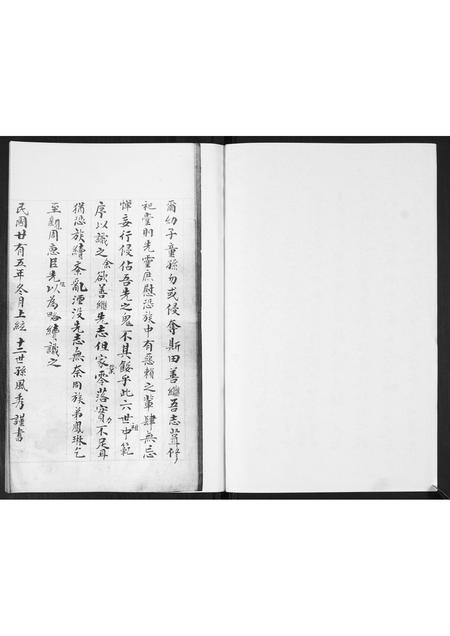 爾幼子童孫勿或侵奪斯田善繼吾志葺修
祀堂則先靈庶慰恐族中有惡賴之輩肆無忌
憚妄行侵佔吾先之鬼不其餒乎此六世祖中範
序以識之余欲善繼先志但家業零落實力不足耳
猶恐族續紊亂湮沒先志無奈向族弟鳳琳乞
至顯周惠臣先以為略續識之
民國廿有五年冬月上絃十二世孫風秀謹書